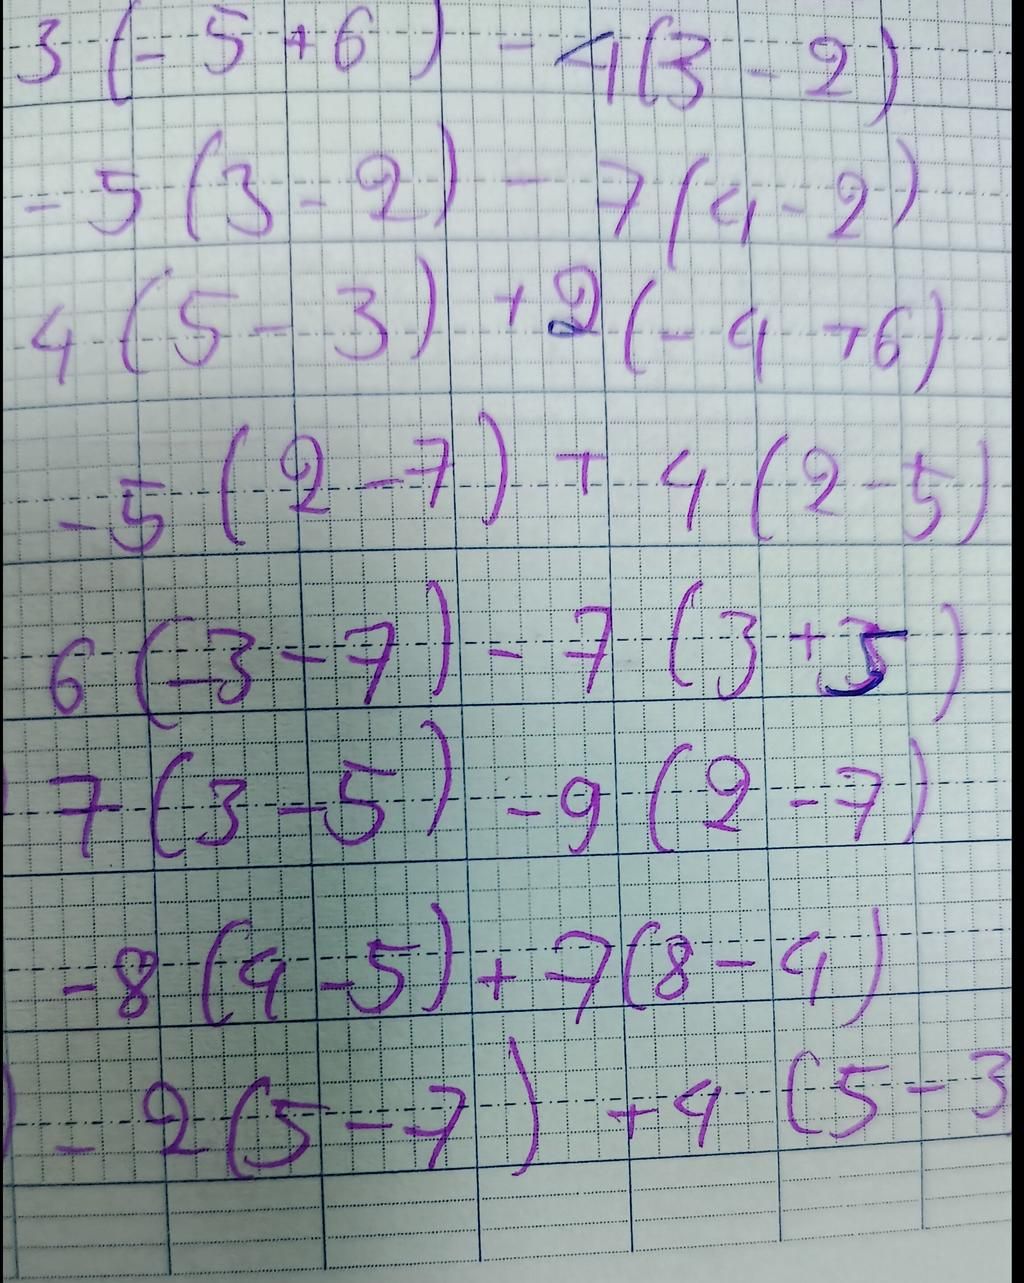 3 (-5+6) - 4(3-2)
-5 (3-2) - 7(4-2)
4 (5-3) +2 (-4+6)
-5 (2-7) + 4 (2-5)
6 (-3-7) - 7 (3+5)
7 (3-5) -9 (2-7)
-8 (4-5) + 7(8-4)
) -2 (5-7) +4 (5-3